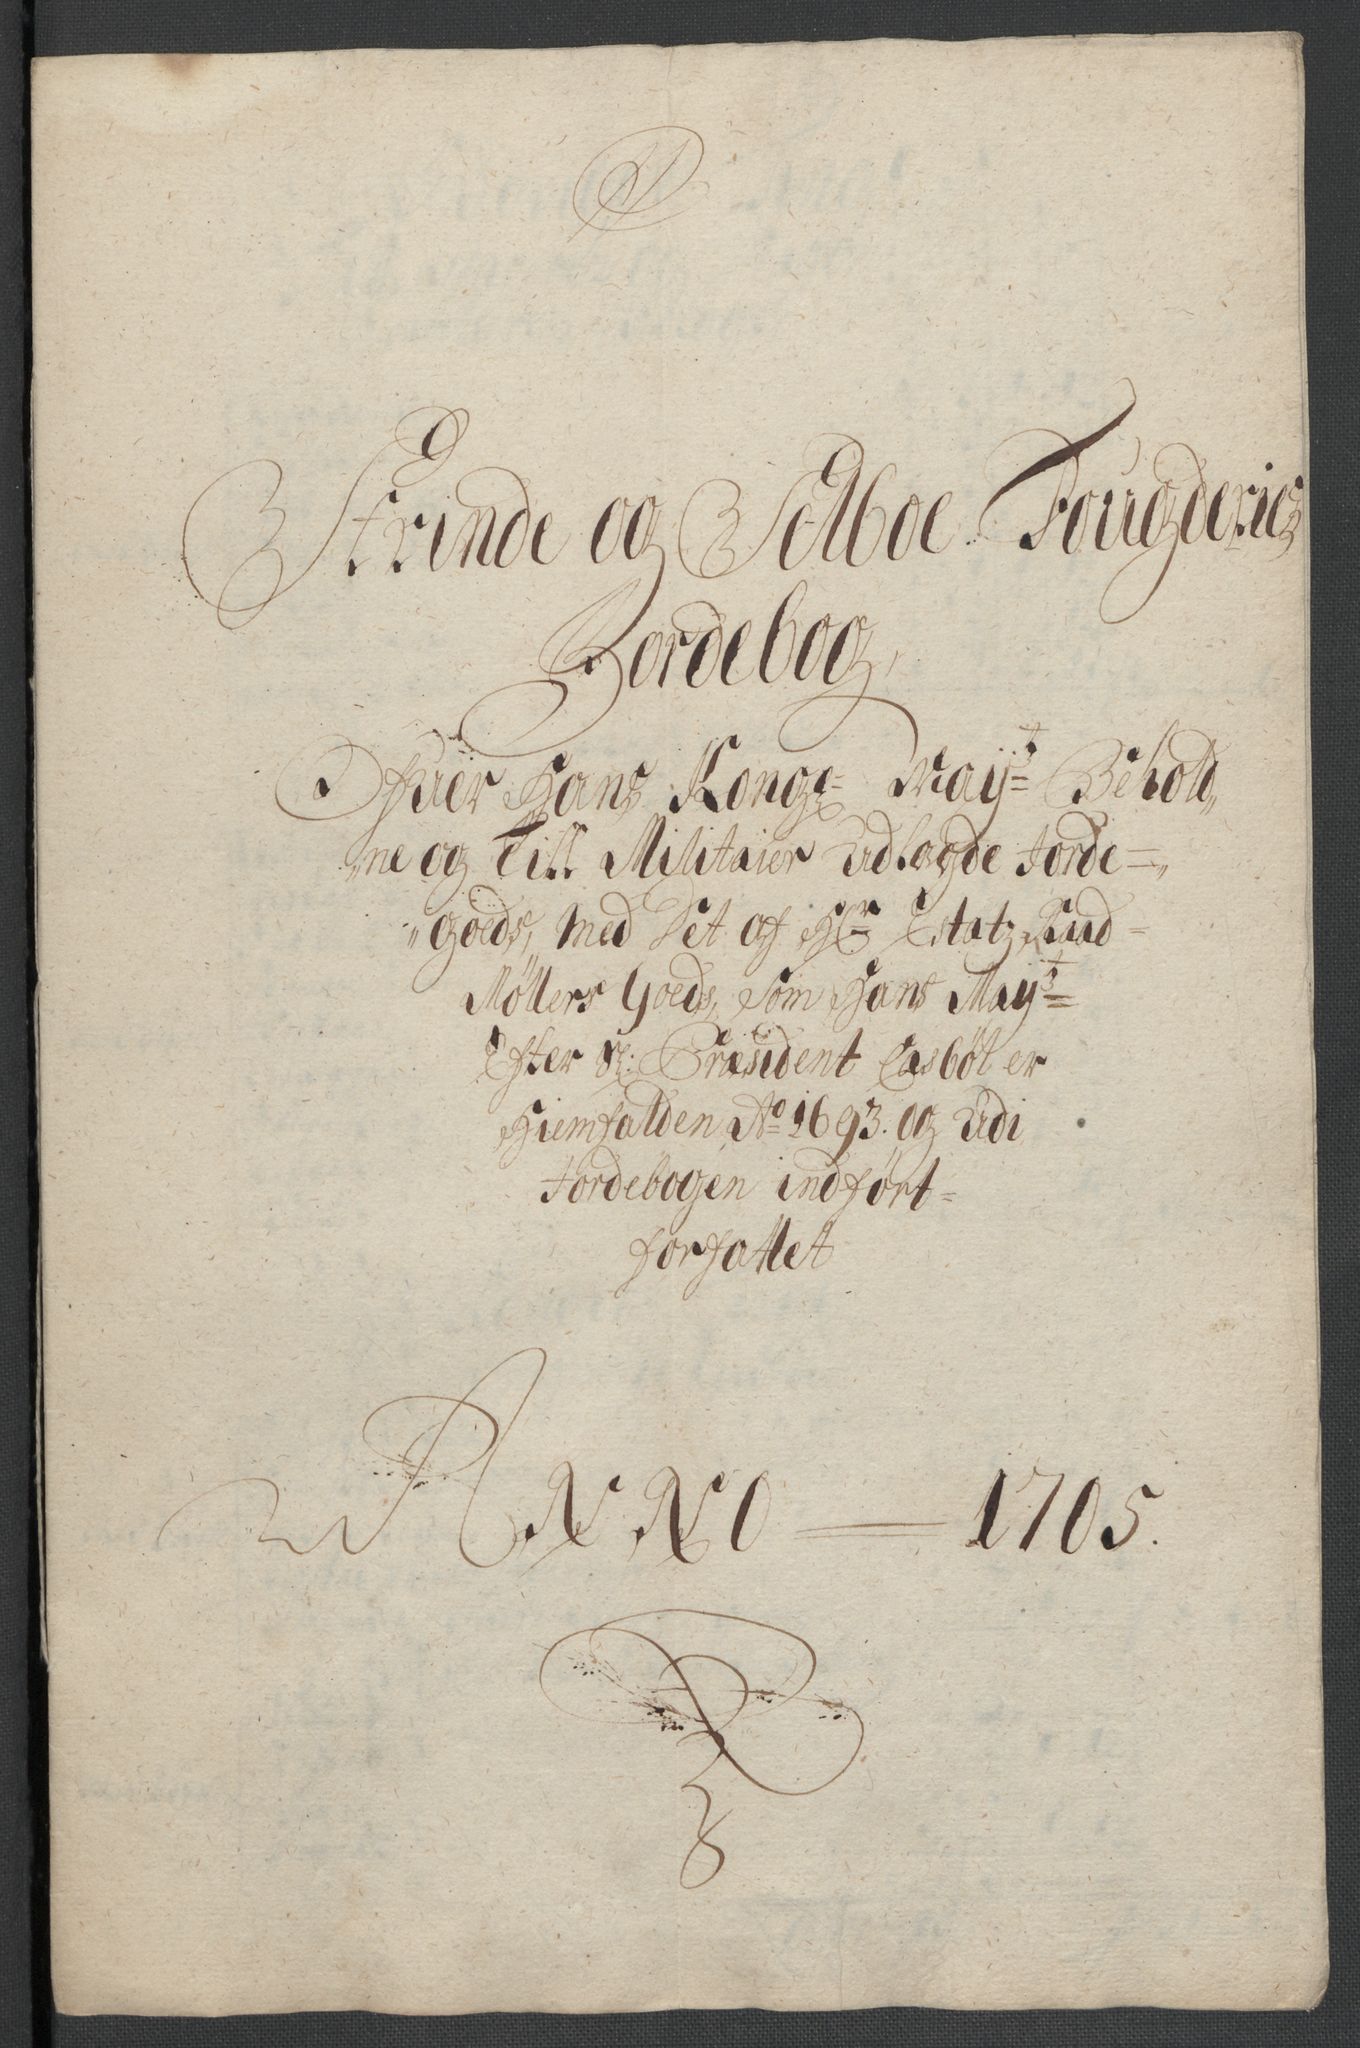 Strinde og Selboe Fougderies
Jordebog,
Ofuer Hans Kong: May:ts Behold„
„ne og Till Militaier Udlagde Jorde=„
„goeds, Med Det af Hr Estatz Raad=
Møllers Goeds, som Hans May:ts
Efter Sl: Præsident Casbøl er
Hiemfalden Ao 1693. og Udi
Jordebogen indført=
forfattet
ANNO — 1705.